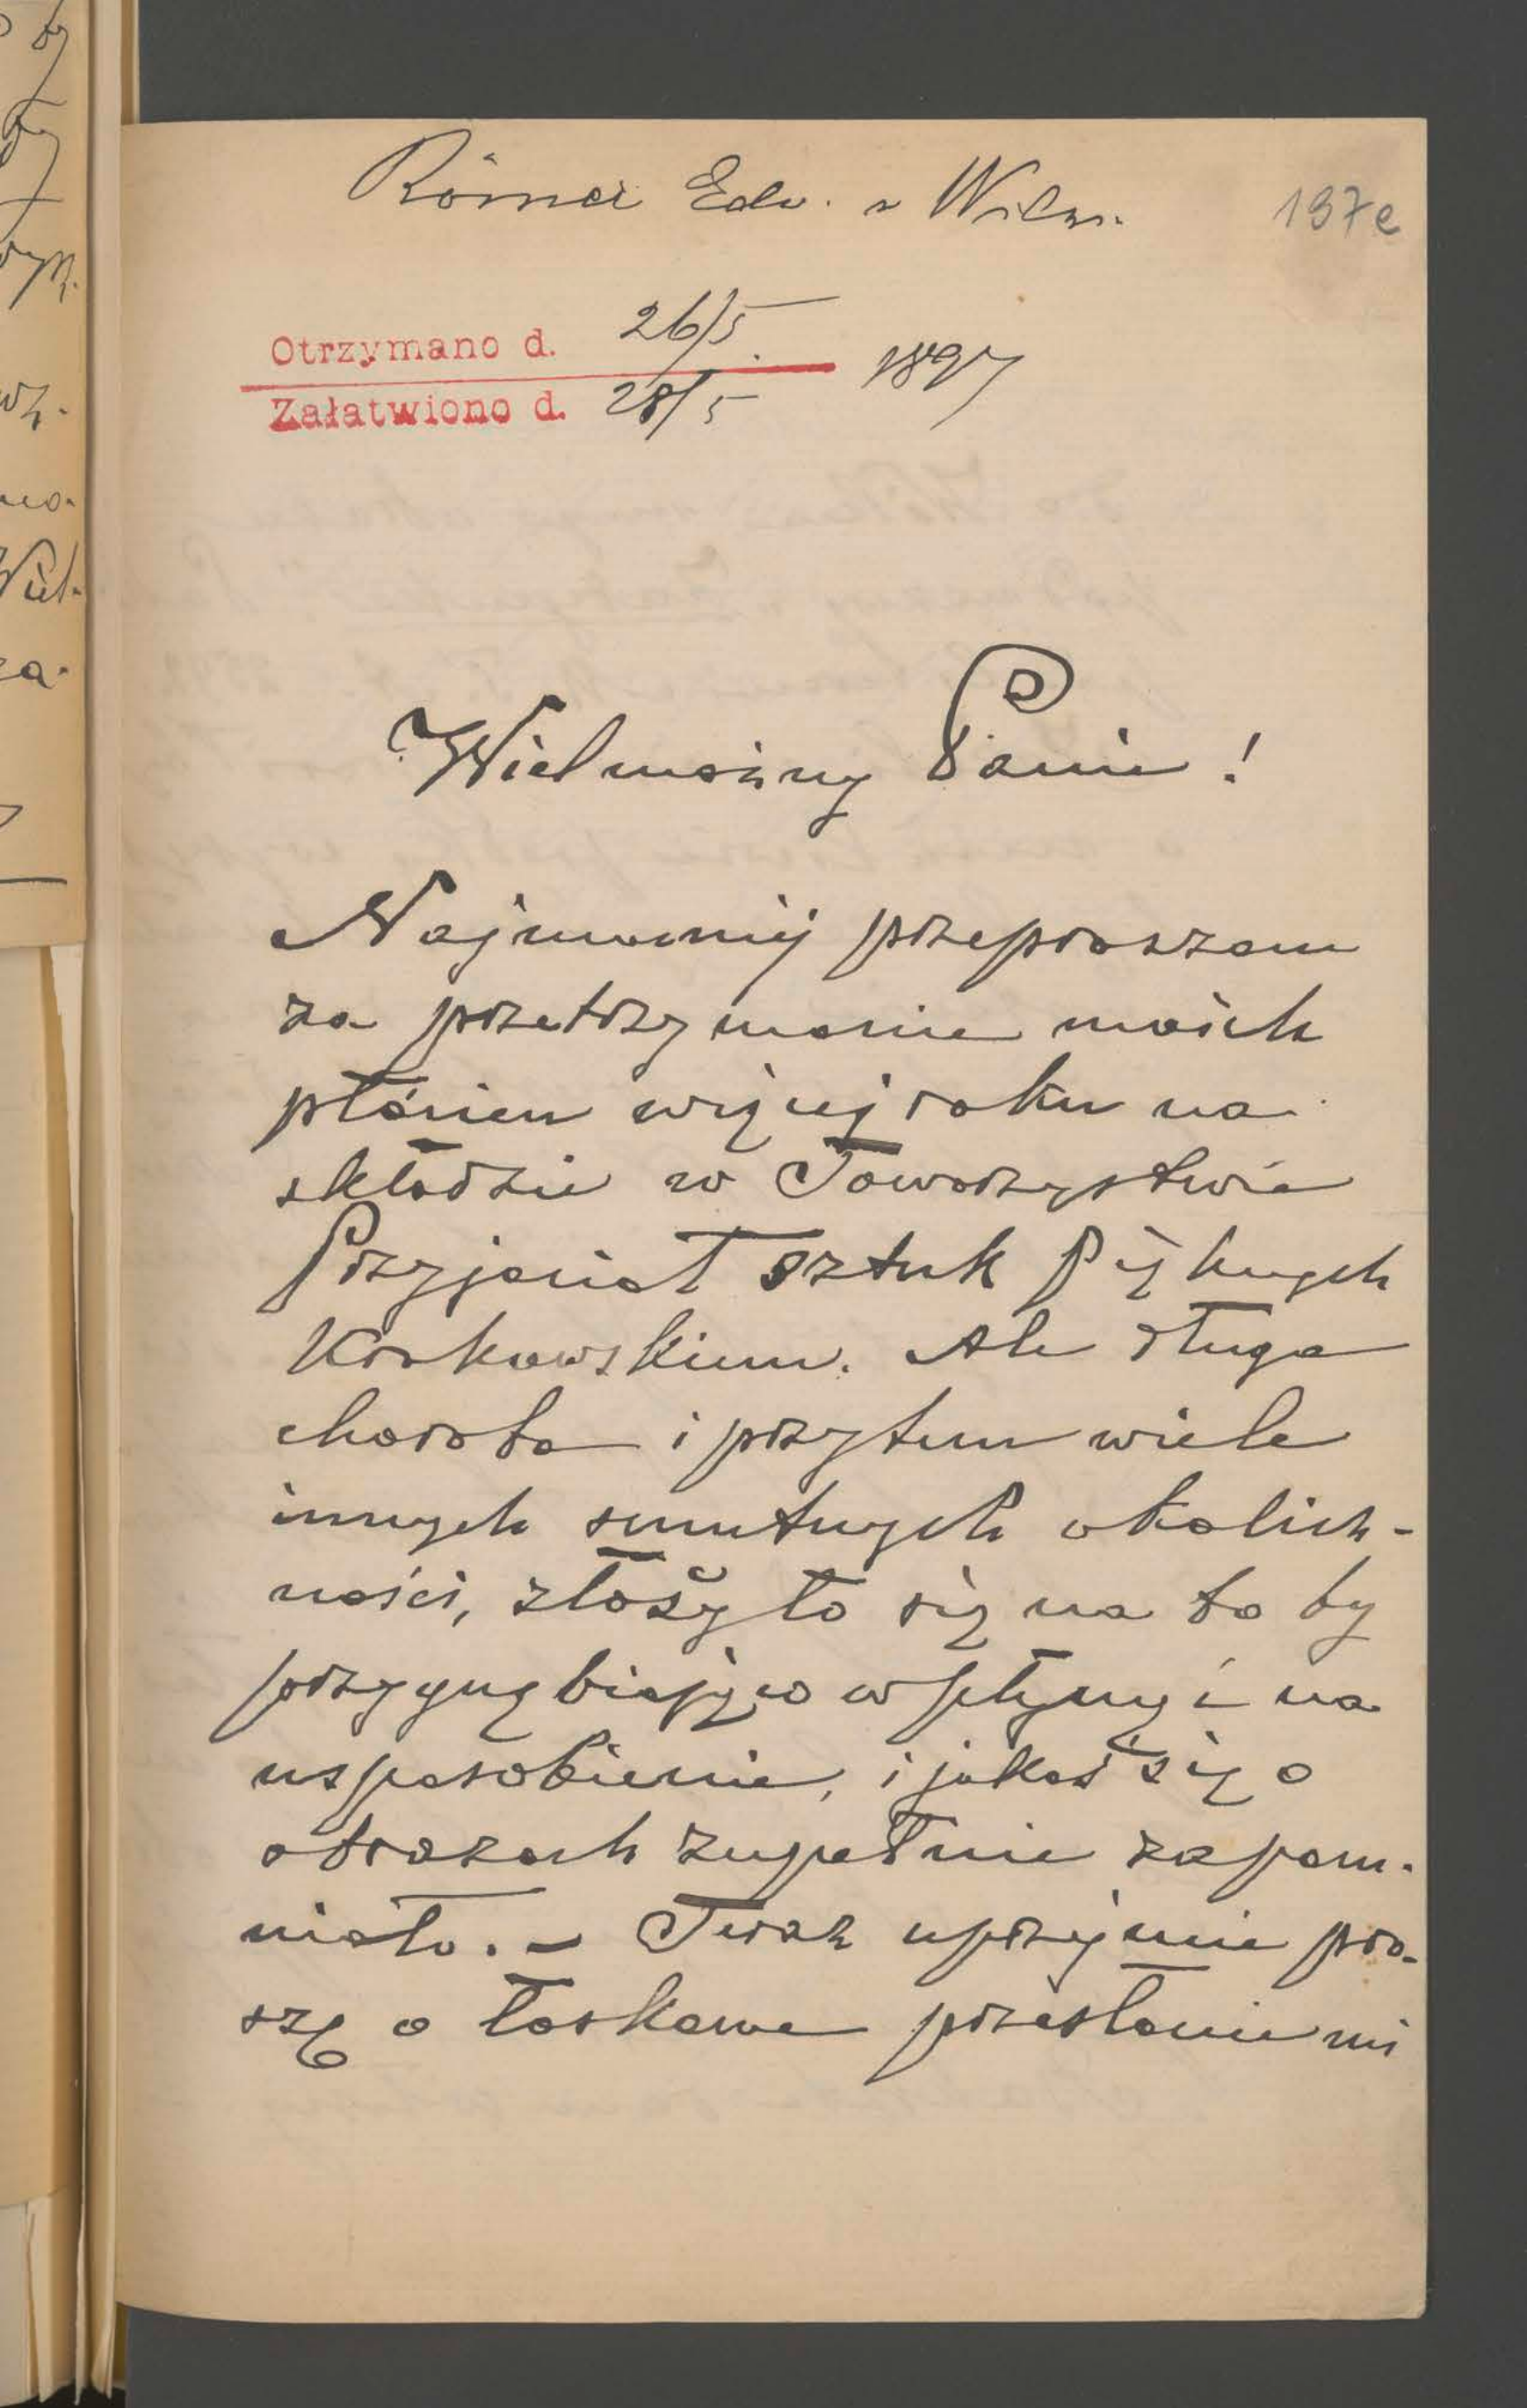 Römer Edw. z Wilna.
197e
Otrzymano d. 26/5.
1897
Załatwiono d. 28/5
Wielmożny Panie!
Najmocniéj przepraszam
za przetrzymanie moich
płócien więcéj roku na
składzie w Towarzystwie
Przyjaciół Sztuk Pięknych
Krakowskiem. Ale długa
choroba i przytem wiele
innych smutnych okolicz-
ności, złożyło się na to by
przygnębiająco wpłynąć na
usposobienie, i jakoś się o
obrazach zupełnie zapom-
niało. - Teraz uprzejmie pro-
szę o łaskawe przesłanie mi